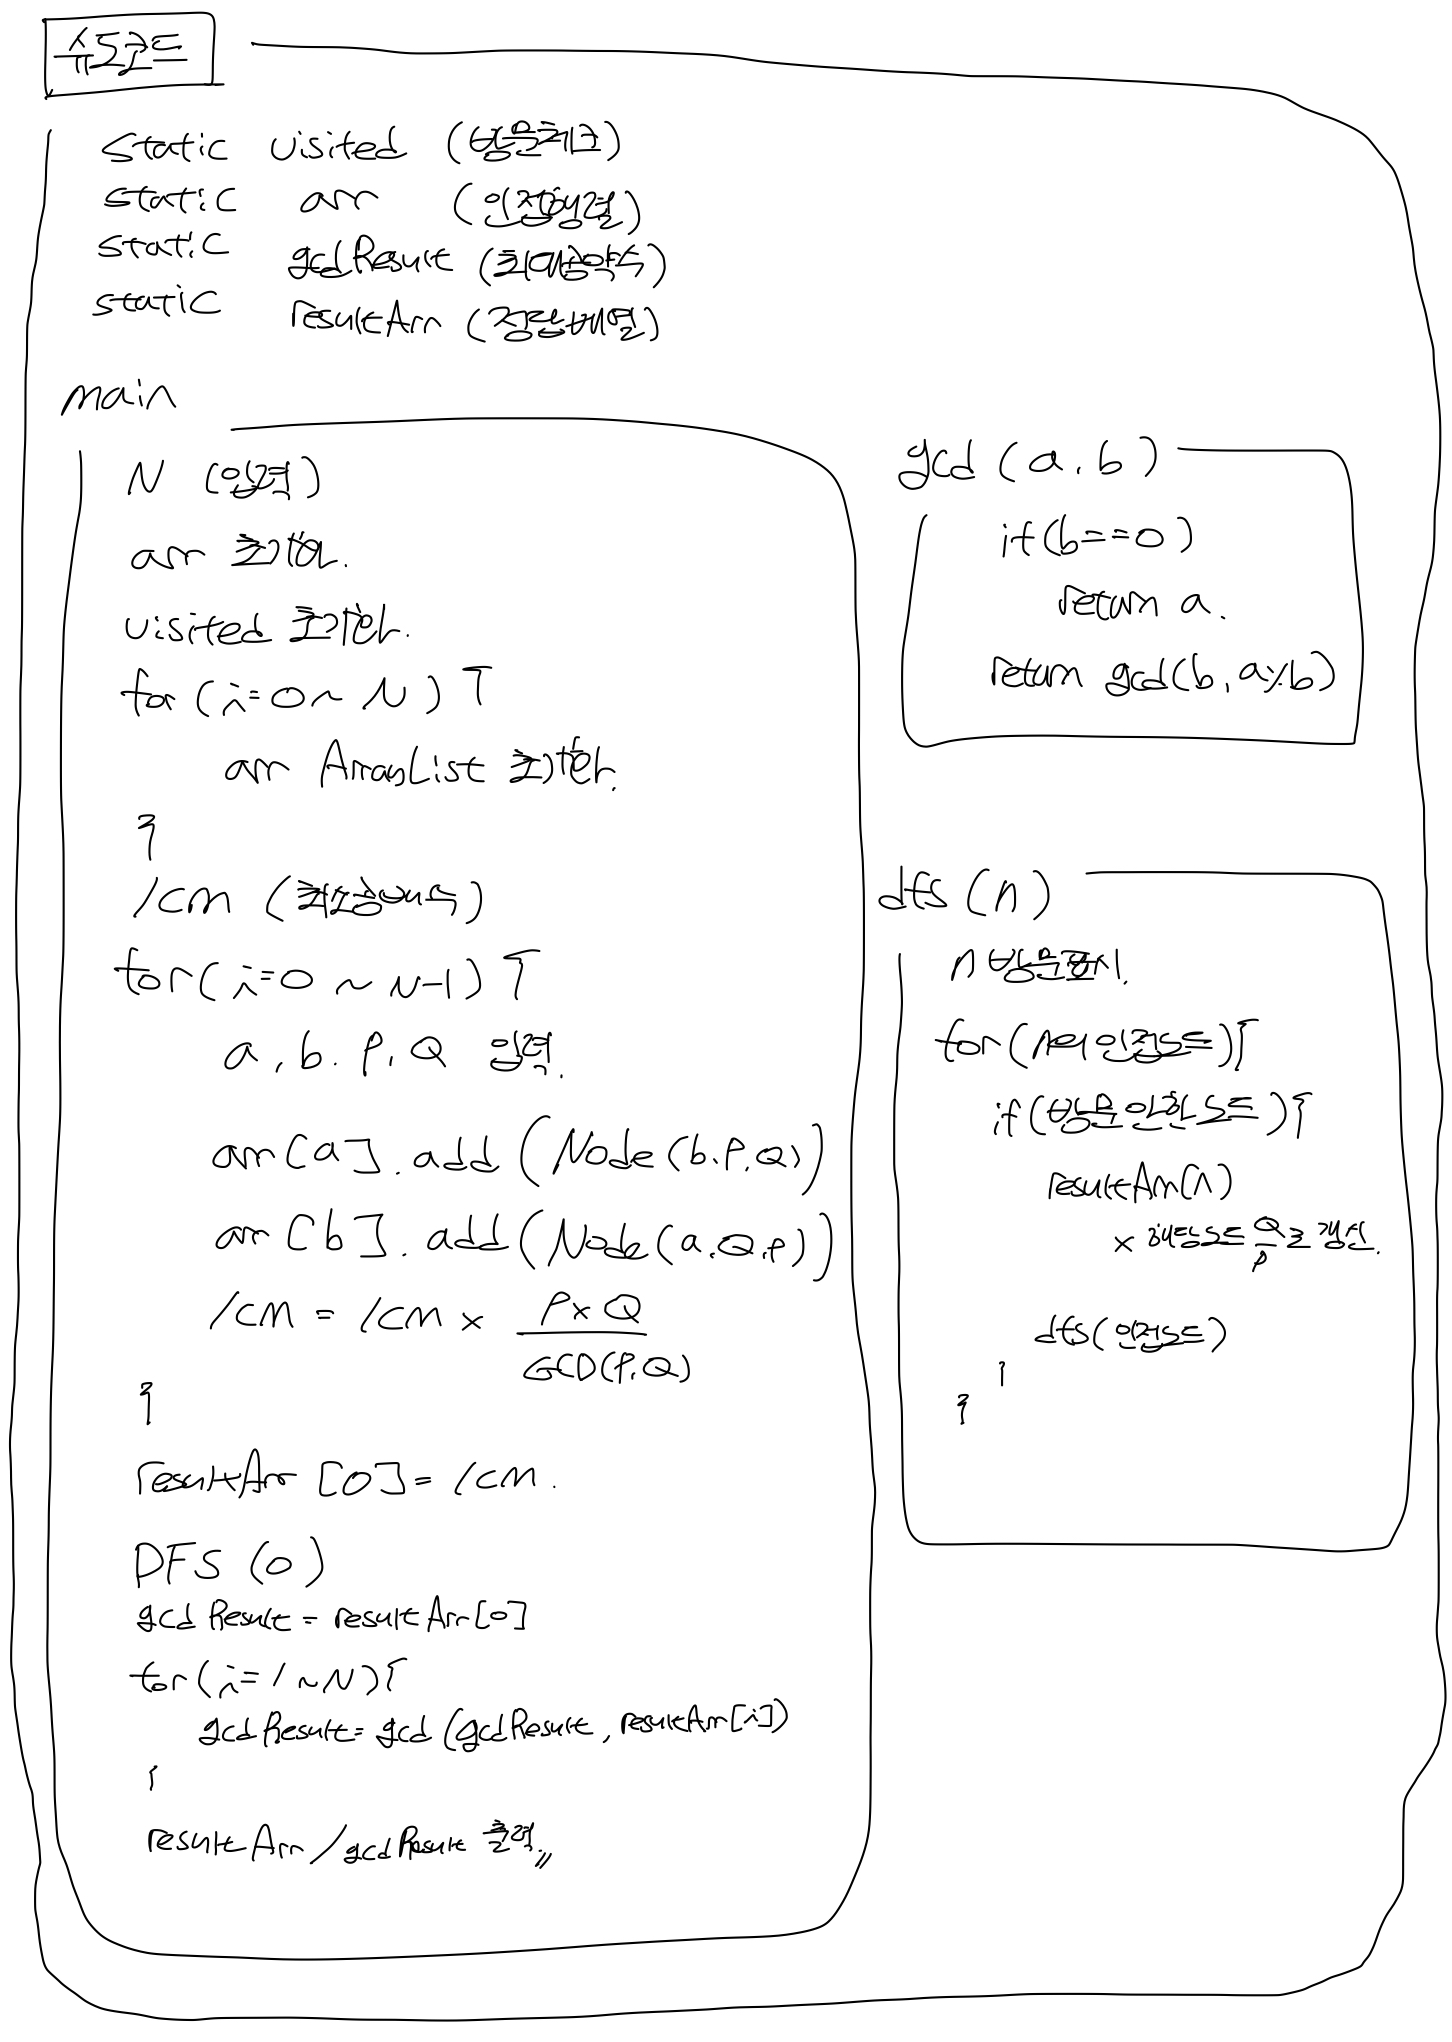 슈도코드
static visited (방문체크)
static arr (인접행렬)
static gcdResult (최대공약수)
static resultArr (정답배열)
main
N (입력)
arr 초기화.
visited 초기화.
for (i=0~N) {
arr ArrayList 초기화.
}
lcm (최소공배수)
for(i=0 ~ N-1) {
a, b. P, Q 입력.
arr[a].add(Node(b.P.Q))
arr[b].add(Node(a.Q.P))
lcm = lcm × P×Q
GCD(P.Q)
}
resultArr [0] = lcm.
DFS (0)
gcdResult = resultArr[0]
for(i=1~N){
gcdResult = gcd (gcdResult, resultArr[i])
}
resultArr / gcdResult 출력.,,
gcd (a. b)
if(b==0)
return a.
return gcd(b, a%b)
dfs (n)
n 방문표시.
for(n의 인접노드){
if(방문 안한 노드){
resultArr(n)
× 해당노드 Q/P로 갱신.
dfs(인접노드)
}
}